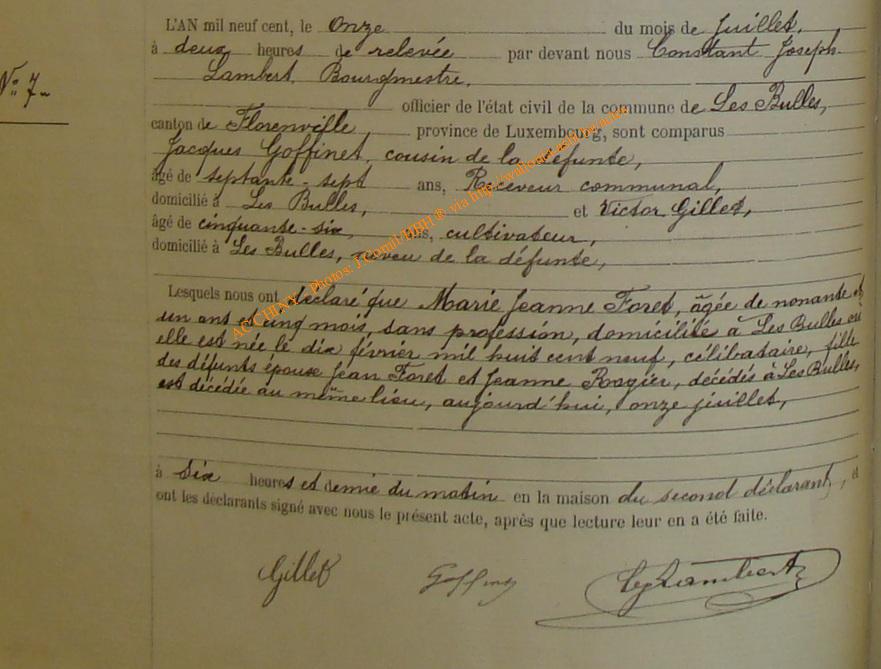 L'AN mil neuf cent, le Onze du mois de Juillet,
à deux heures de relevée par devant nous Constant Joseph
Nº 7.
Lambert, Bourgmestre,
officier de l'état civil de la commune de Les Bulles,
canton de Florenville, province de Luxembourg, sont comparus
Jacques Goffinet, cousin de la défunte,
âgé de septante-sept ans, Receveur communal,
domicilié à Les Bulles, et Victor Gillet,
âgé de cinquante-six ans, cultivateur,
domicilié à Les Bulles, neveu de la défunte,
Lesquels nous ont déclaré que Marie Jeanne Foret, âgée de nonante et
un ans et cinq mois, sans profession, domiciliée à Les Bulles où
elle est née le dix février mil huit cent neuf, célibataire, fille
des défunts époux Jean Foret et Jeanne Rogier, décédés à Les Bulles,
est décédée au même lieu, aujourd'hui, onze juillet,
à six heures et demie du matin en la maison du second déclarant, et
ont les déclarants signé avec nous le présent acte, après que lecture leur en a été faite.
Gillet Goffinet Lambert
ACCHINY - Photos: J.Cornil MBH ® via http://